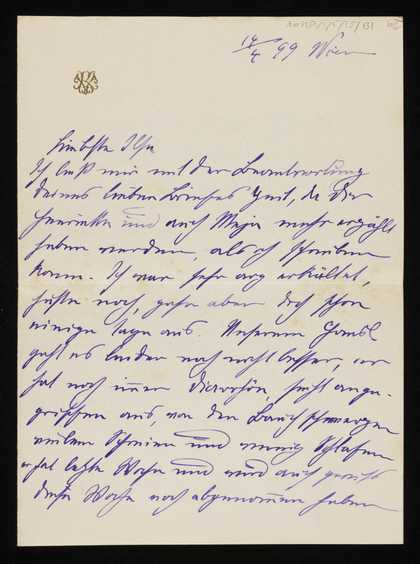 14/4 99 Wien
Liebste Ilse
Ich ließ mir mit der Beantwortung
deines lieben Briefes Zeit, da Dir
Henriette und auch Maja mehr erzählt
haben werden, als ich schreiben
kann. Ich war sehr arg erkältet,
huste noch, gehe aber doch schon
einige Tage aus. Unserem Hansl
geht es leider noch nicht besser, er
hat noch immer Diarrhöe, sieht ange-
griffen aus, von den Bauchschmerzen
vielem Schreien und wenig Schlafen
er hat letzte Woche und wird auch
diese Woche noch abgenommen haben